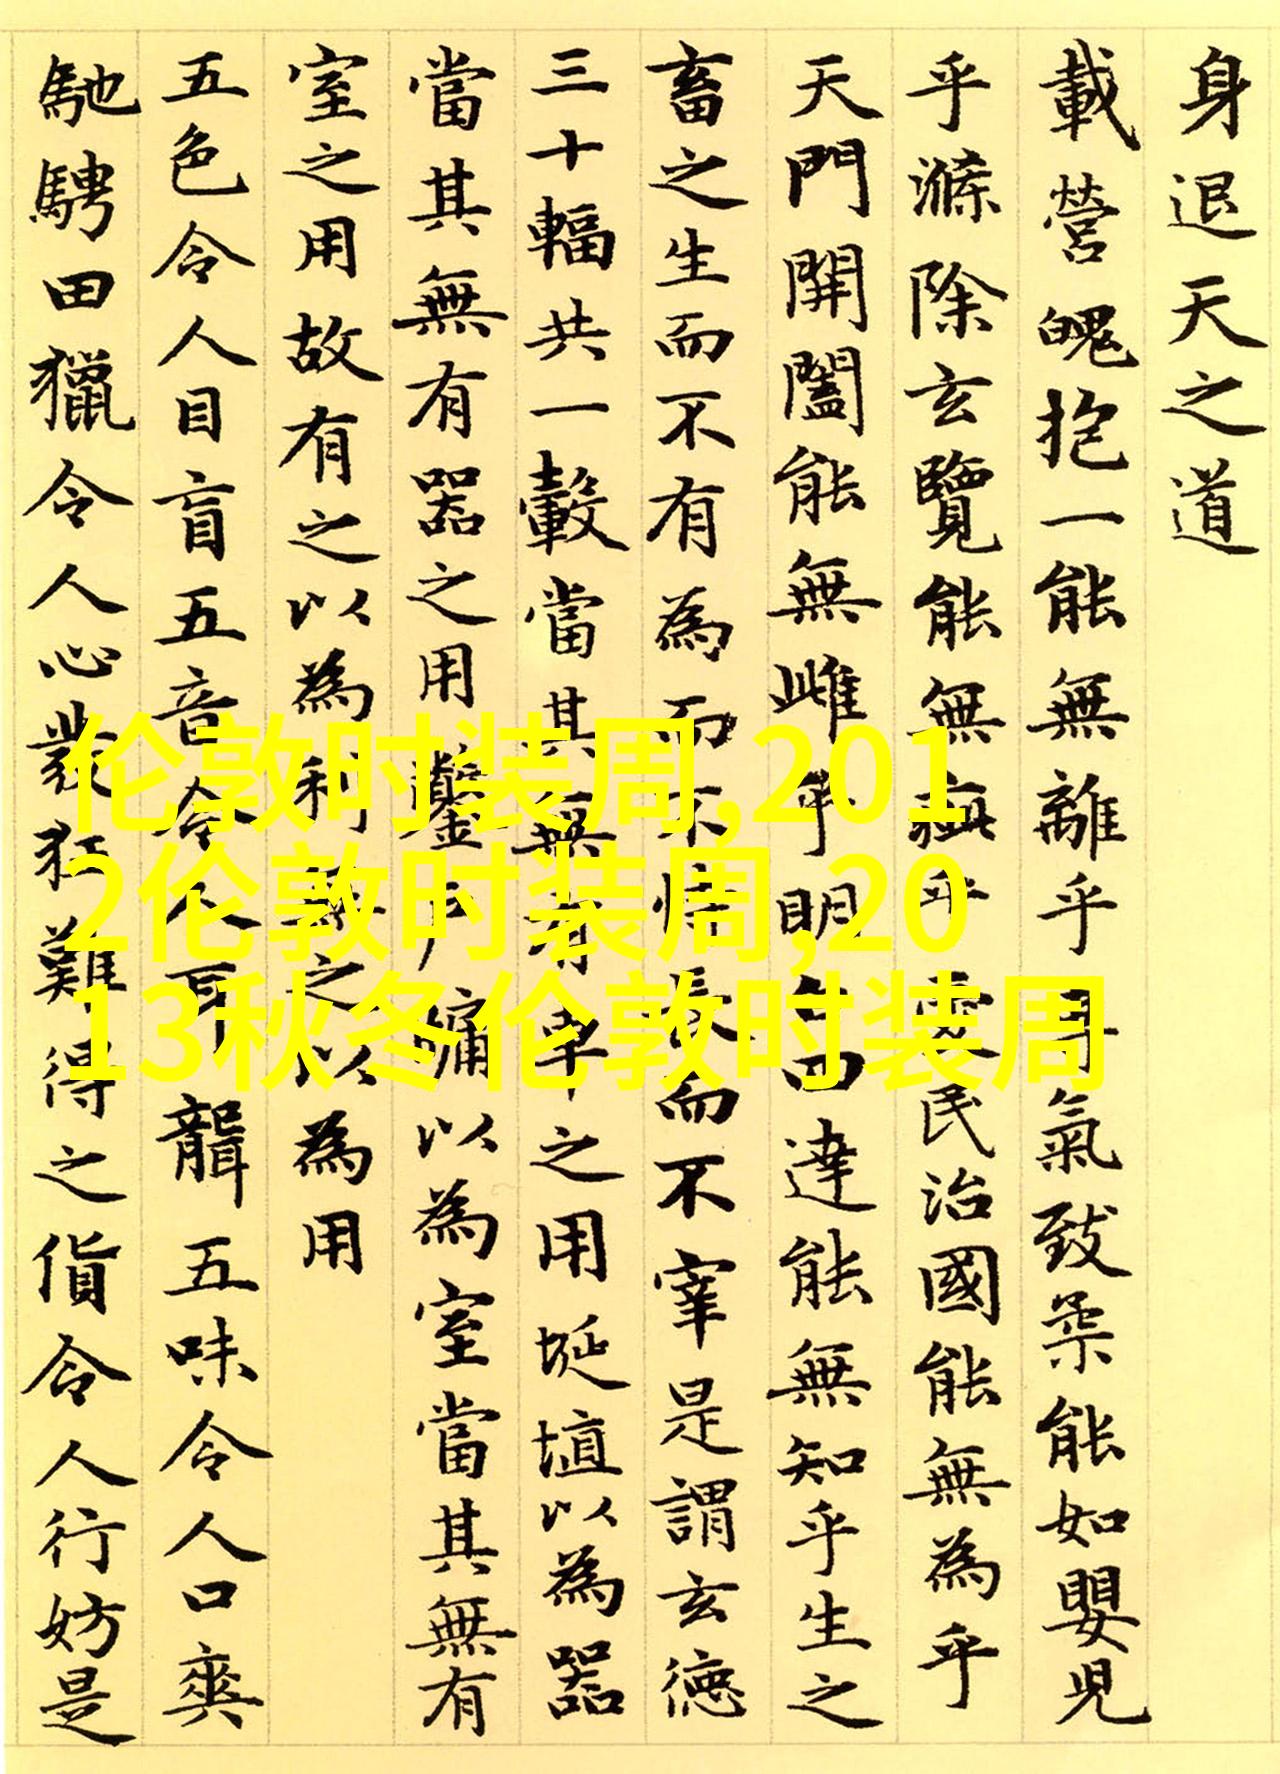 身退天之道
載營魄抱一能無離乎專氣致柔能如嬰兒
乎滌除玄覽能無疵乎愛民治國能無為乎
天門開闔能無雌乎明白四達能無知乎生之
畜之生而不有為而不恃長而不宰是謂玄德
三十輻共一轂當其無有車之用埏埴以為器
當其無有器之用鑿戶牖以為室當其無有
室之用故有之以為利無之以為用
五色令人目盲五音令人耳聾五味令人口爽
馳騁田獵令人心發狂難得之貨令人行妨是
伦敦时装周,201
2伦敦时装周,20
13秋冬伦敦时装周